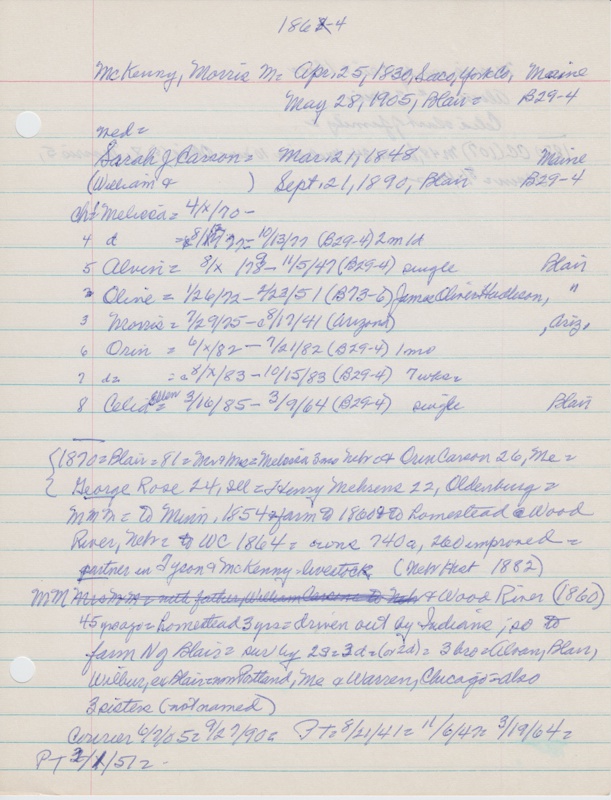 186 -4
McKenny, Morris M= Apr. 25, 1830, Saco, York Co, Maine
May 28, 1905, Blair= B29-4
wed=
Sarah J Carson= Mar. 21, 1848 Maine
(William & ) Sept. 21, 1890, Blair B29-4
ch= Melissa= 4/x/70-
4 d = 77= 10/13/77 (B29-4) 2m 1d
5 Alvin= 8/x/79- 11/5/47 (B29-4) single Blair
2 Oline= 1/26/72- 2/23/51 (B73-6) James Oliver Hadleson, "
3 Morris= 7/29/75- 8/17/41 (Arizona) , Ariz,
6 Orin = 6/x/82- 7/21/82 (B29-4) 1mo
7 d= =a 8/x/83- 10/15/83 (B29-4) 7wks=
8 Celia Ellen= 3/16/85- 3/9/64 (B29-4) single Blair
{1870=Blair=81=Mr & Mrs=Melissa 3mo Nebr & Orin Carson 26, Me=
{ George Rose 24, Ill=Henry Mehrens 22, Oldenburg=
MMM= to Minn, 1854=farm to 1860= to homestead @ Wood
River, Nebr= to WC 1864= owns 740a, 260 improved=
partner in Tyson & McKenny=livestock (Nebr Hist 1882)
MM & Wood River (1860)
45 yrs ago=homestead 3yrs=driven out by Indians; so to
farm N of Blair= sur by 2s=3d=(or 2d)= 3 bro=Alvan, Blair,
Wilbur, ex Blair=now Portland, Me & Warren, Chicago=also
3 sisters (not named)
Courier 6/7/05= 9/27/90= PT= 8/21/41= 11/6/47= 3/19/64=
PT 3/1/51=